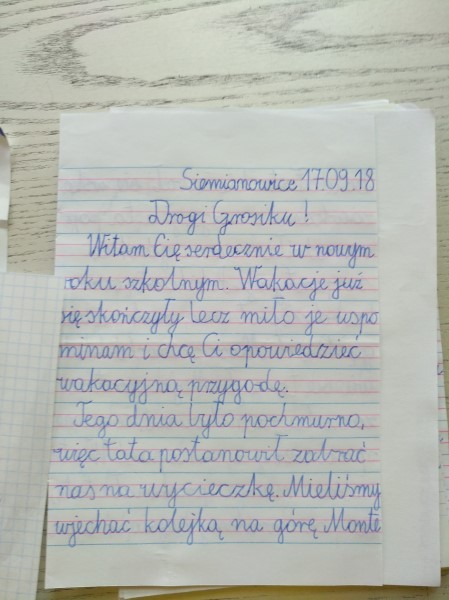 Siemianowice 17.09.18
Drogi Grosiku!
Witam Cię serdecznie w nowym
roku szkolnym. Wakacje już
się skończyły lecz miło je wspo
minam i chcę Ci opowiedzieć
wakacyjną przygodę.
Tego dnia było pochmurno,
więc tata postanowił zabrać
nas na wycieczkę. Mieliśmy
wjechać kolejką na górę Monte